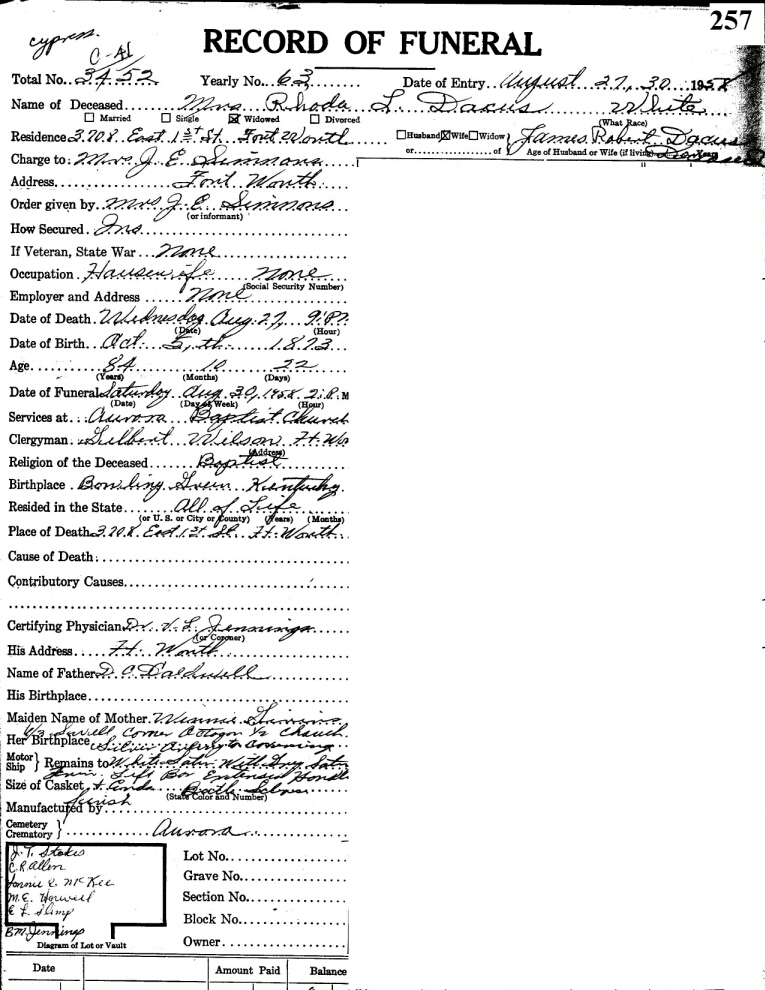 257
cypress.
C-41
RECORD OF FUNERAL
Total No. 3452 Yearly No. 63 Date of Entry August 27, 30, 1958
Name of Deceased Mrs Rhoda L. Dacus White
☐ Married ☐ Single ☒ Widowed ☐ Divorced (What Race)
Residence 3708 East 1st St. Fort Worth ☐Husband ☒Wife ☐Widow James Robert Dacus
or of Age of Husband or Wife (if living)
Charge to: Mrs J. E. Simmons
Address Fort Worth
Order given by Mrs J. E. Simmons
(or informant)
How Secured Ins
If Veteran, State War None
Occupation Housewife None
(Social Security Number)
Employer and Address None
Date of Death Wednesday Aug. 27, 9:
(Date) (Hour)
Date of Birth Oct. 5, th 1873
Age 84 10 22
(Years) (Months) (Days)
Date of Funeral Saturday Aug. 30, 1958 2: P.M
(Date) (Day of Week) (Hour)
Services at Aurora Baptist Church
Clergyman Gilbert Wilson Ft. Wo
(Address)
Religion of the Deceased Baptist
Birthplace Bowling Green Kentucky
Resided in the State All of Life
(or U. S. or City or County) (Years) (Months)
Place of Death 3708 East 1st St. Ft. Worth
Cause of Death:
Contributory Causes
Certifying Physician Dr. V. L. Jennings
(or Coroner)
His Address Ft. Worth
Name of Father D. C. Caldwell
His Birthplace
Maiden Name of Mother Simmons
6/3 Corner Octogon 1/2 Couch
Her Birthplace Silver covering
Motor Ship } Remains to White Satin
Lift Bar Extension Handle
Size of Casket Silver
(State Color and Number)
Manufactured by
Cemetery
Crematory } Aurora
J. T. Stokes
C. R. Allen
Lonnie R. McKee
M. E. Howell
E. L. Slimp
B.M. Jennings
Diagram of Lot or Vault
Lot No.
Grave No.
Section No.
Block No.
Owner
Date Amount Paid Balance